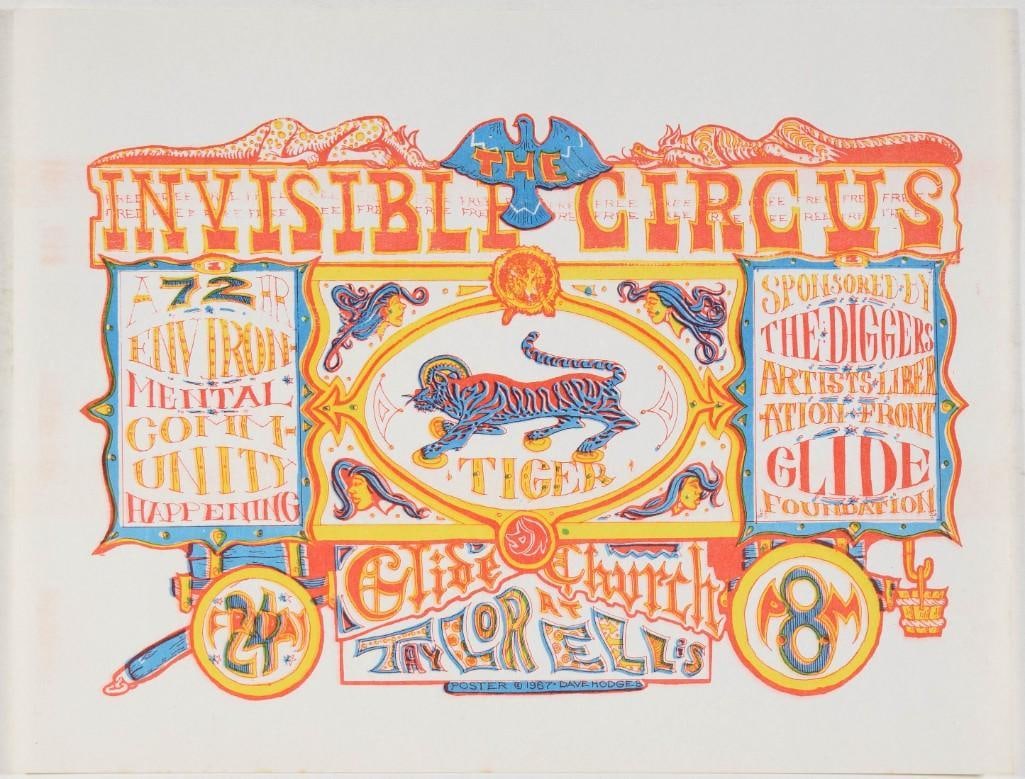 THE
INVISIBLE CIRCUS
FREE FREE FREE FREE FREE FREE FREE FREE FREE
FREE FREE FREE FREE FREE FREE FREE FREE
A 72 HR
ENVIRON-
MENTAL
COMM-
UNITY
HAPPENING
TIGER
SPONSORED BY
THE·DIGGERS
ARTISTS·LIBER
ATION·FRONT
GLIDE
FOUNDATION
FRIDAY
24
Glide Church
AT
TAYLOR ELLIS
8
PM
POSTER © 1967·DAVE HODGES